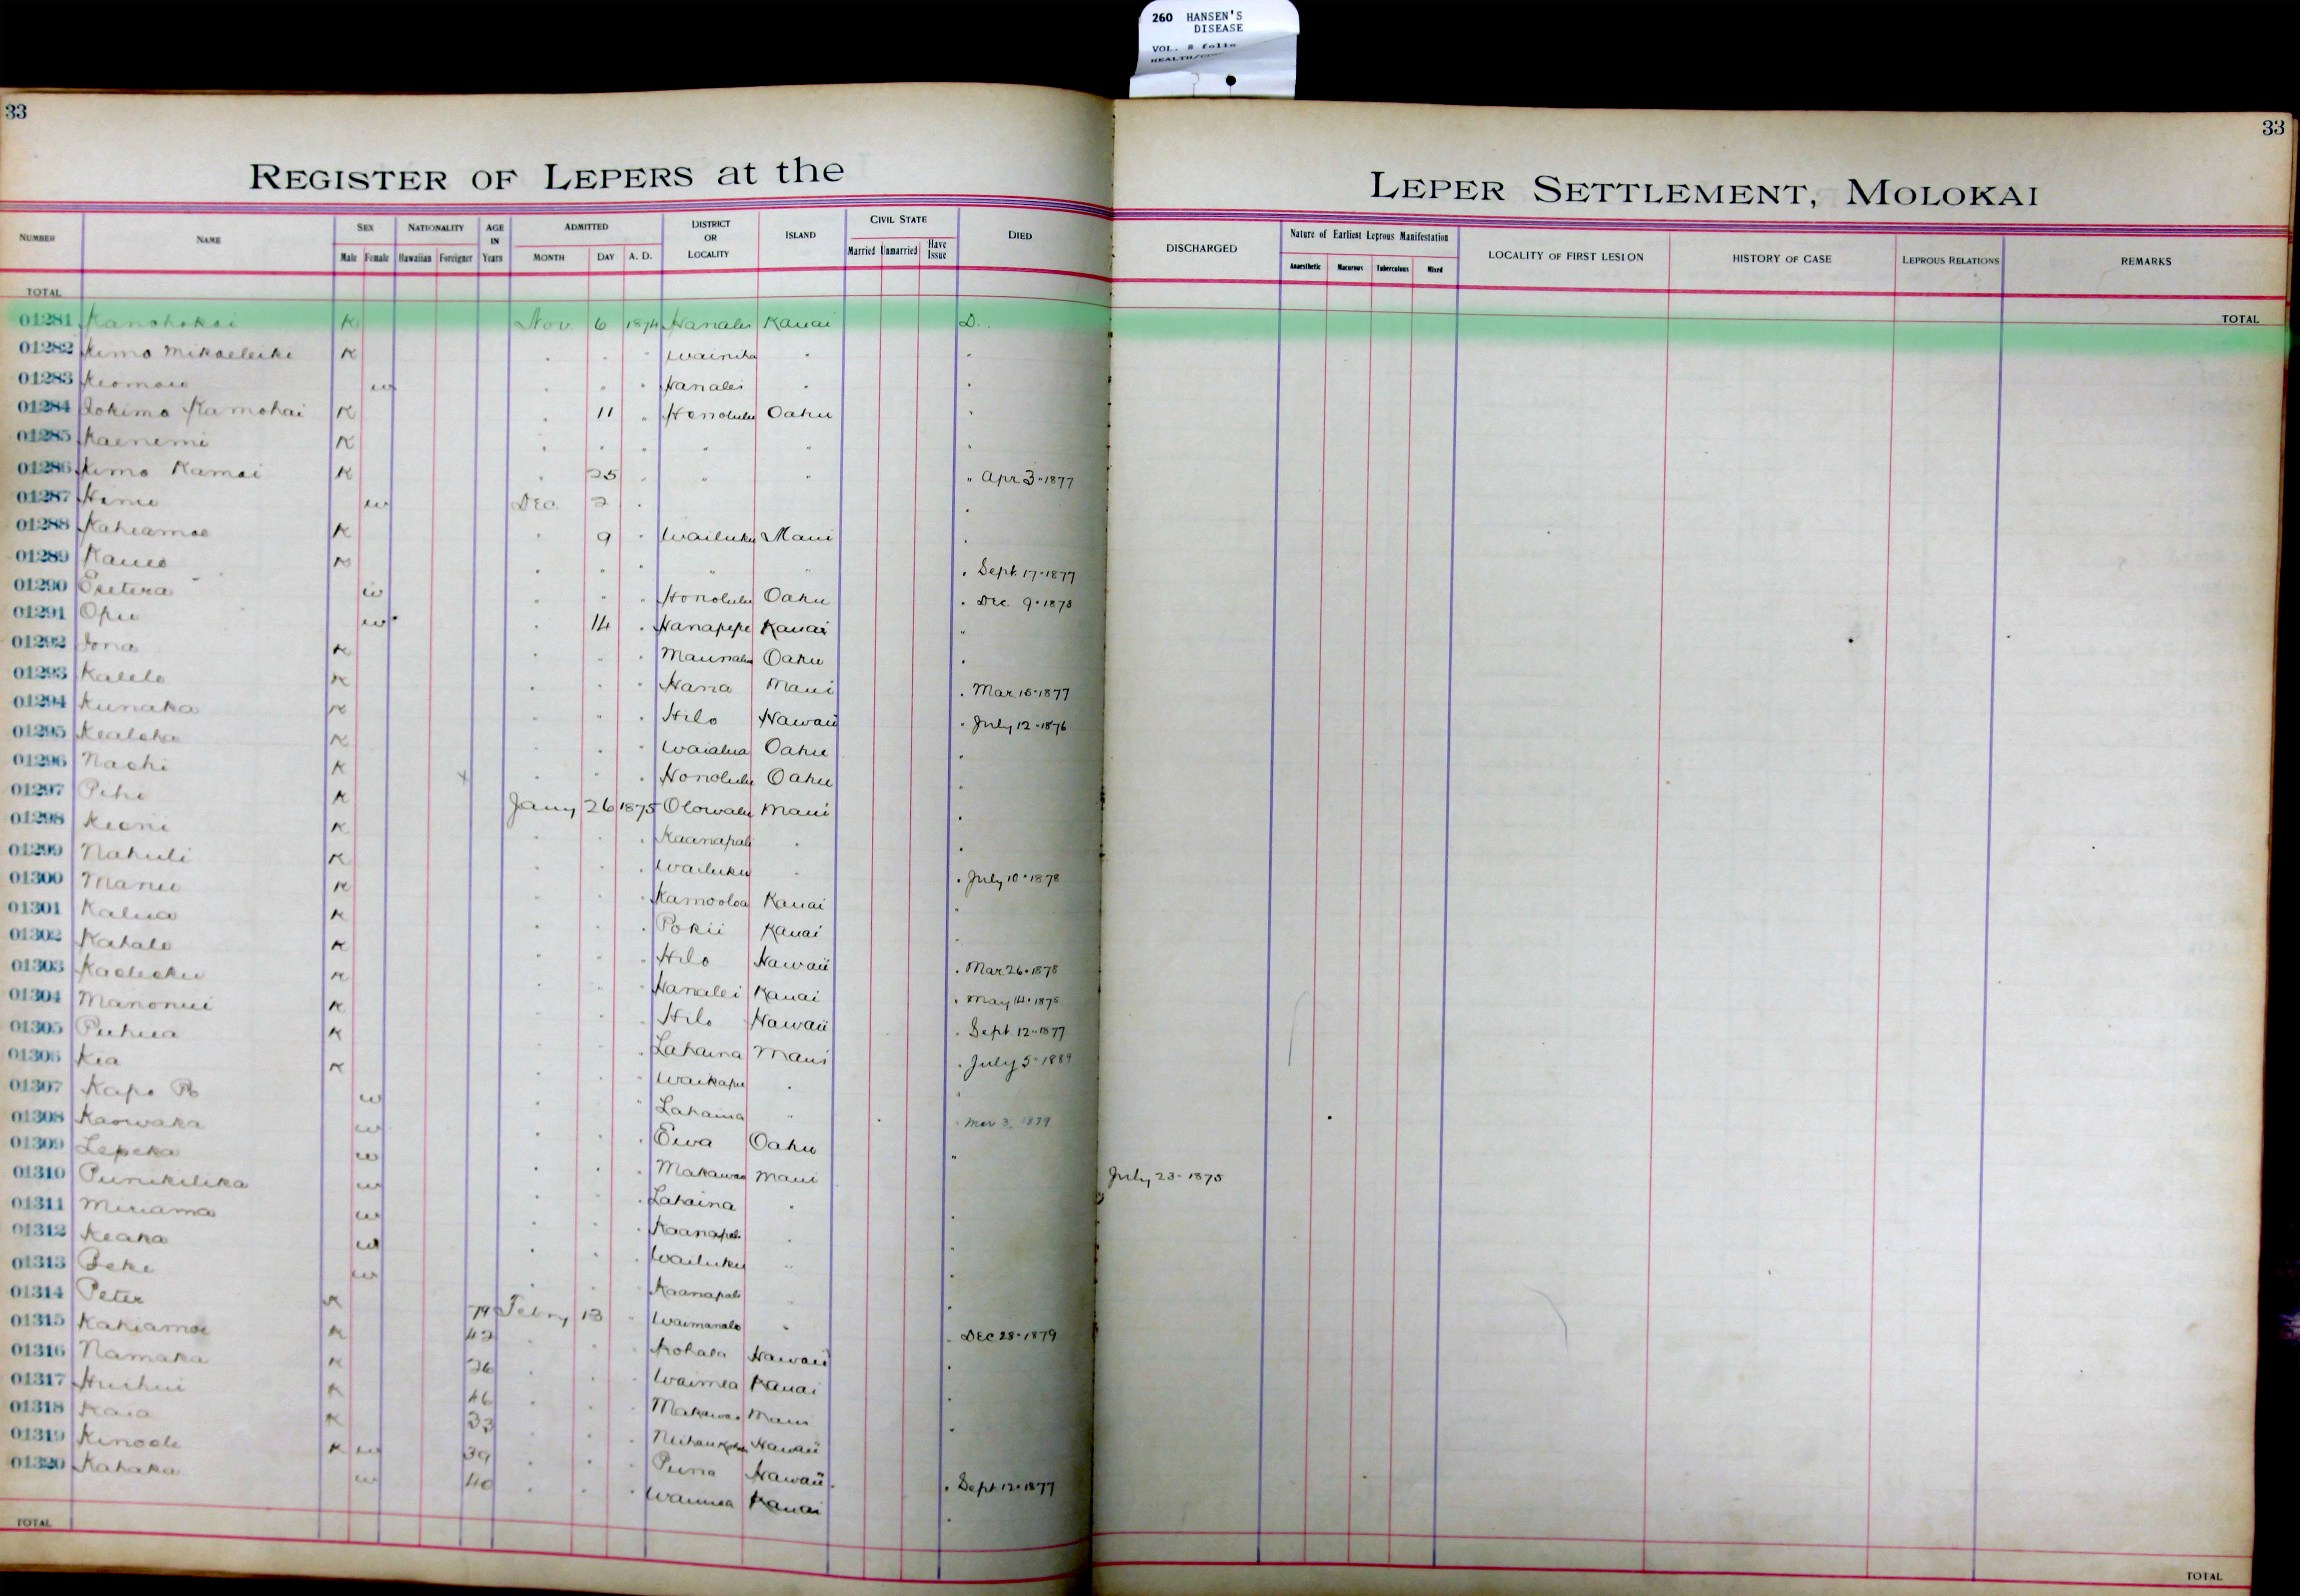 260 HANSEN'S
DISEASE
VOL. 8 folio
33
33
REGISTER OF LEPERS at the LEPER SETTLEMENT, MOLOKAI
NUMBER NAME SEX NATIONALITY AGE IN Years ADMITTED DISTRICT OR LOCALITY ISLAND CIVIL STATE DIED DISCHARGED Nature of Earliest Leprous Manifestation LOCALITY OF FIRST LESION HISTORY OF CASE LEPROUS RELATIONS REMARKS
Male Female Hawaiian Foreigner MONTH DAY A. D. Married Unmarried Have Issue Anaesthetic Macurous Tuberculous Mixed
TOTAL TOTAL
01281 Kanohokai K Nov. 6 1874 Hanalei Kauai D.
01282 Kimo Mikaeleiki K " " " Wainiha " "
01283 w " " " Hanalei " "
01284 Iokimo Kamohai K " 11 " Honolulu Oahu "
01285 Kaenemi K " " " " " "
01286 Kimo Kamai K " 25 " " " " Apr 3-1877
01287 w Dec. 2 " "
01288 Kahiamoe K " 9 " Wailuku Maui "
01289 K " " " " " " Sept. 17-1877
01290 w " " " Honolulu Oahu " Dec. 9-1878
01291 Opu w " 14 " Hanapepe Kauai "
01292 Iona K " " " Oahu "
01293 Kalelo K " " " Hana Maui " Mar 15-1877
01294 Kunaka K " " " Hilo Hawaii " July 12-1876
01295 Kealoha K " " " Waialua Oahu "
01296 Naohi K x " " " Honolulu Oahu "
01297 Pihi K Jany 26 1875 Olowalu Maui "
01298 Keoni K " " " Kaanapali " "
01299 Nahuli K " " " Wailuku " " July 10-1878
01300 Manu K " " " Kamooloa Kauai "
01301 Kalua K " " " Pokii Kauai "
01302 Kahalo K " " " Hilo Hawaii " Mar 26-1878
01303 K " " " Hanalei Kauai " May 14-1875
01304 Manonui K " " " Hilo Hawaii " Sept 12-1877
01305 Puhua K " " " Lahaina Maui " July 5-1889
01306 Kia K " " " Waikapu " "
01307 Kapo w " " " Lahaina " " Mar 3, 1879
01308 Kaowaka w " " " Ewa Oahu "
01309 Lepeka w " " " Makawao Maui July 23-1875
01310 Punikilika w " " " Lahaina " "
01311 Miriama w " " " Kaanapali " "
01312 Keaka w " " " Wailuku " "
01313 Beke w " " " Kaanapali " "
01314 Peter K 79 Febry 13 " Waimanalo " " Dec 28-1879
01315 Kahiamoe K 42 " " " Kohala Hawaii "
01316 Namaka K 26 " " " Waimea Kauai "
01317 Huihui K 46 " " " Makawao Maui "
01318 Kaia K 33 " " " Hawaii
01319 Kinoole K w 39 " " " Puna Hawaii " Sept 12-1877
01320 Kahaka w 40 " " " Waimea Kauai "
TOTAL TOTAL